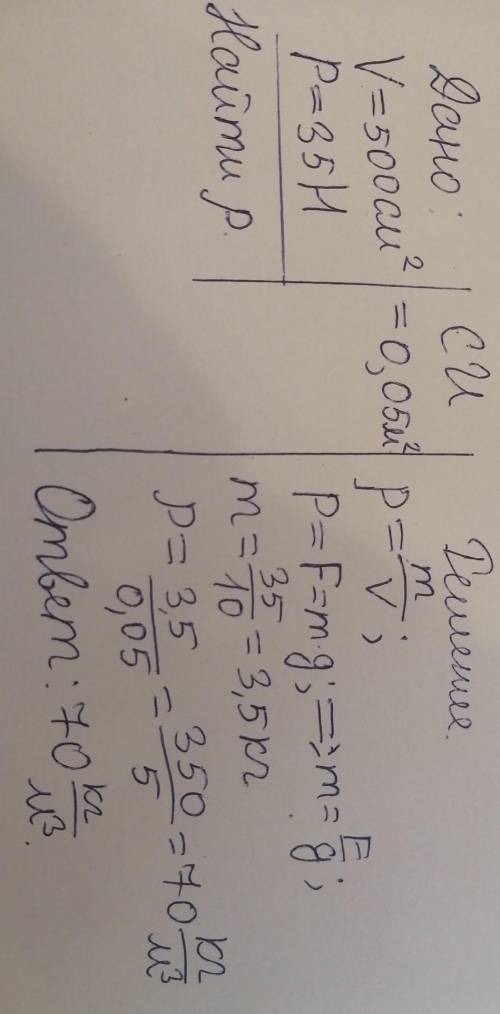 Дано:
V=500см²
P=35Н
Найти ρ.
СИ
=0,05м²
Решение.
ρ=m/V;
P=F=m·g; ⇒ m=F/g;
m=35/10=3,5кг
ρ=3,5/0,05=350/5=70 кг/м³
Ответ: 70 кг/м³.